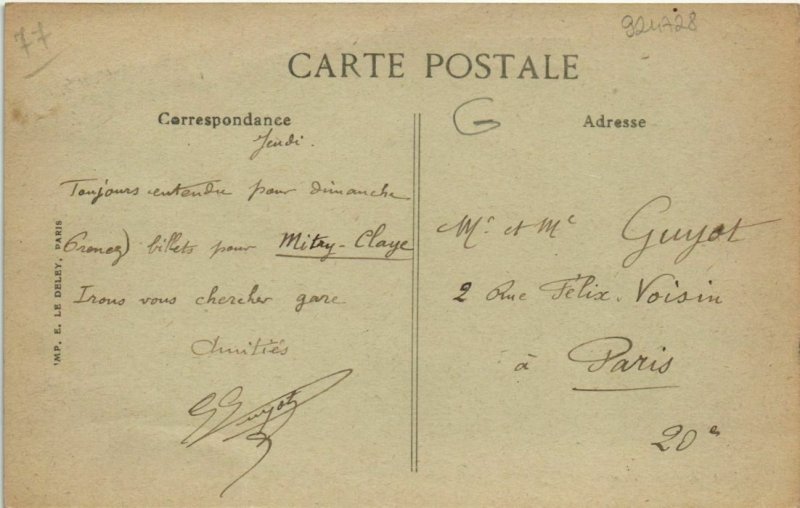 77
924728
CARTE POSTALE
Correspondance
Adresse
Jeudi.
Toujours entendu pour dimanche
Prenez billets pour Mitry-Claye
Irons vous chercher gare
Amitiés
Guyot
IMP. E. LE DELEY, PARIS
G
Mr et Me Guyot
2 Rue Félix. Voisin
à Paris
20e